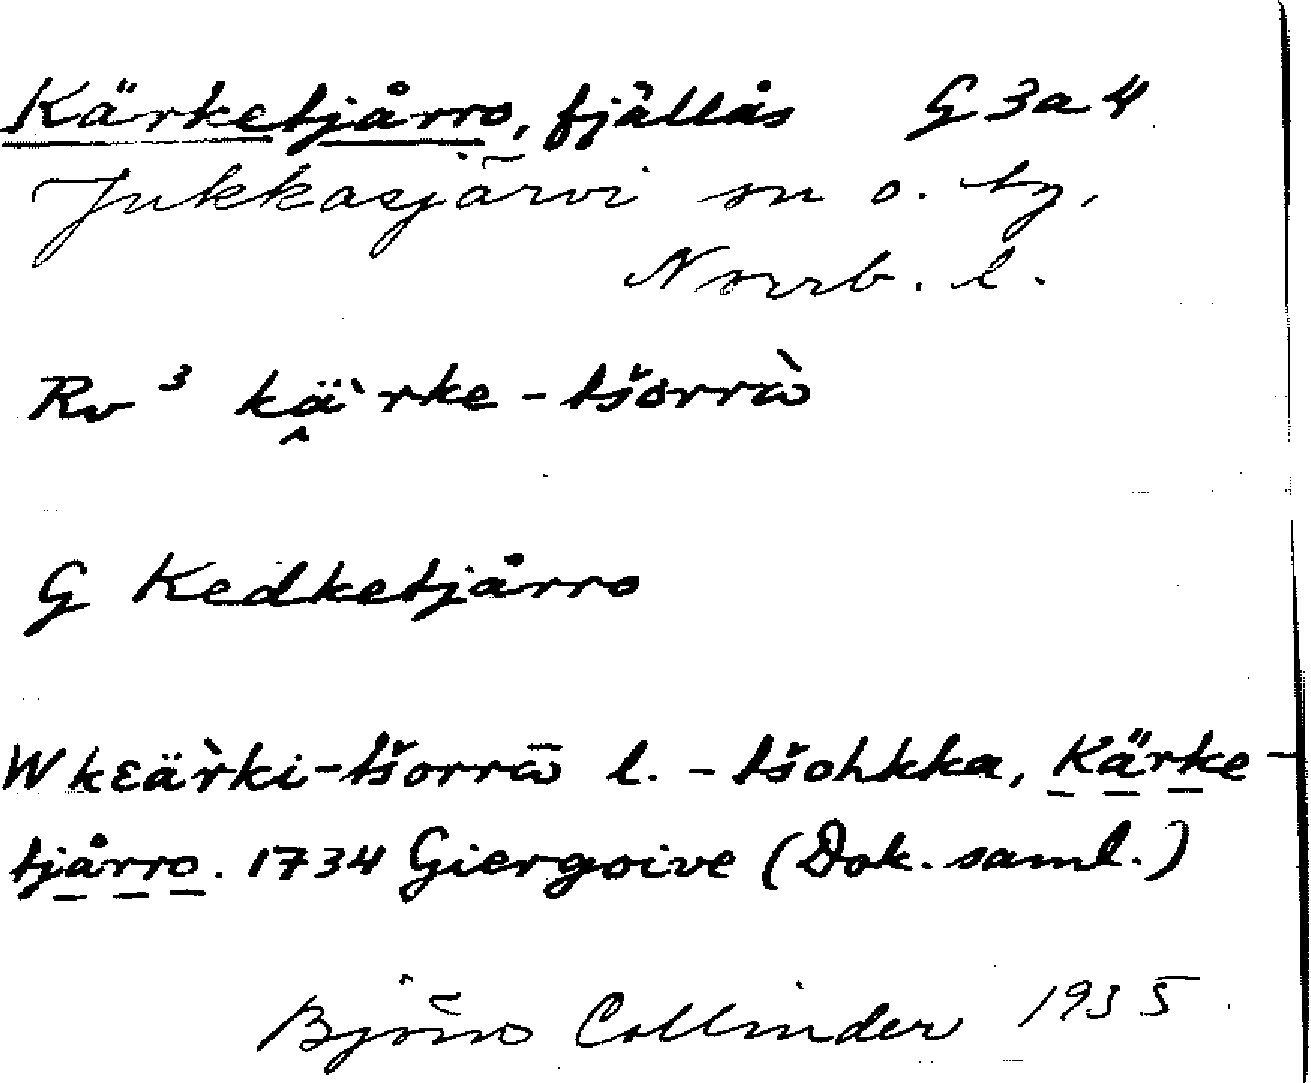 Kärketjårro, fjällås G3a4
Jukkasjärvi sn o. tg,
Norrb. l.
Rv³ kä̭̀rke-tšorrà̄
G Kedketjårro
W kεär̀ki-tšorrā l. -tšohkka, Kärke-
tjårro. 1734 Giergoive (Dok. saml.)
Björn Collinder 1935